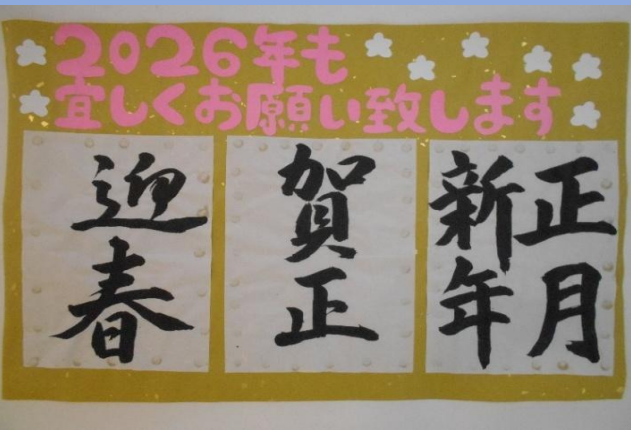 2026年も
宜しくお願い致します
正月
新年
賀正
迎春